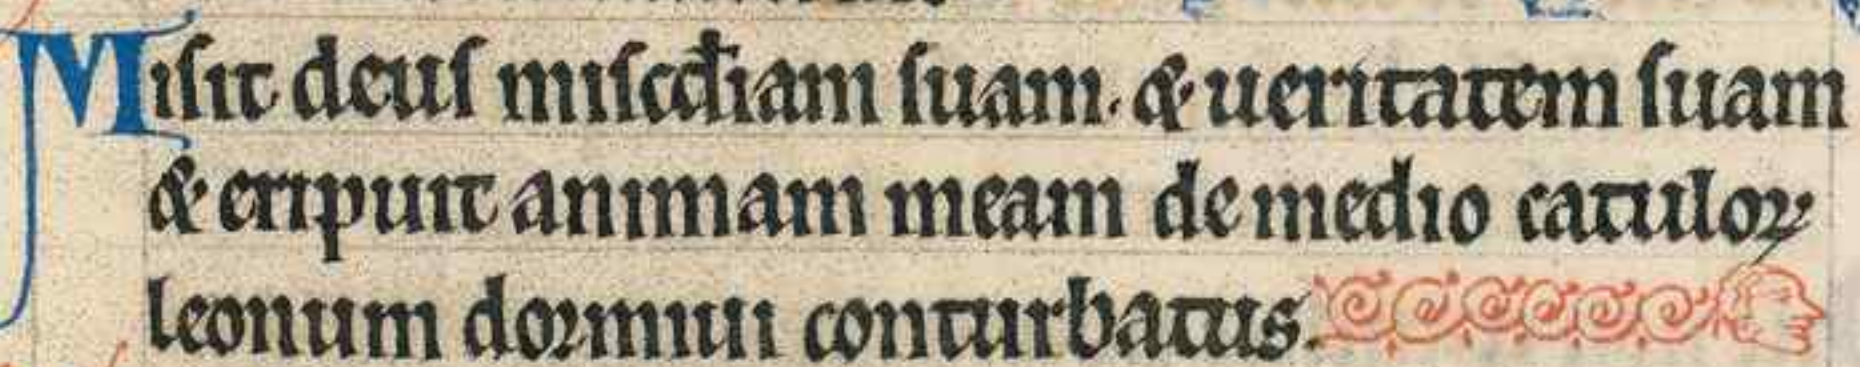 Misit deus miscd̄iam suam. & ueritatem suam
& eripuit animam meam de medio catuloꝝ
leonum dormiui conturbatus.